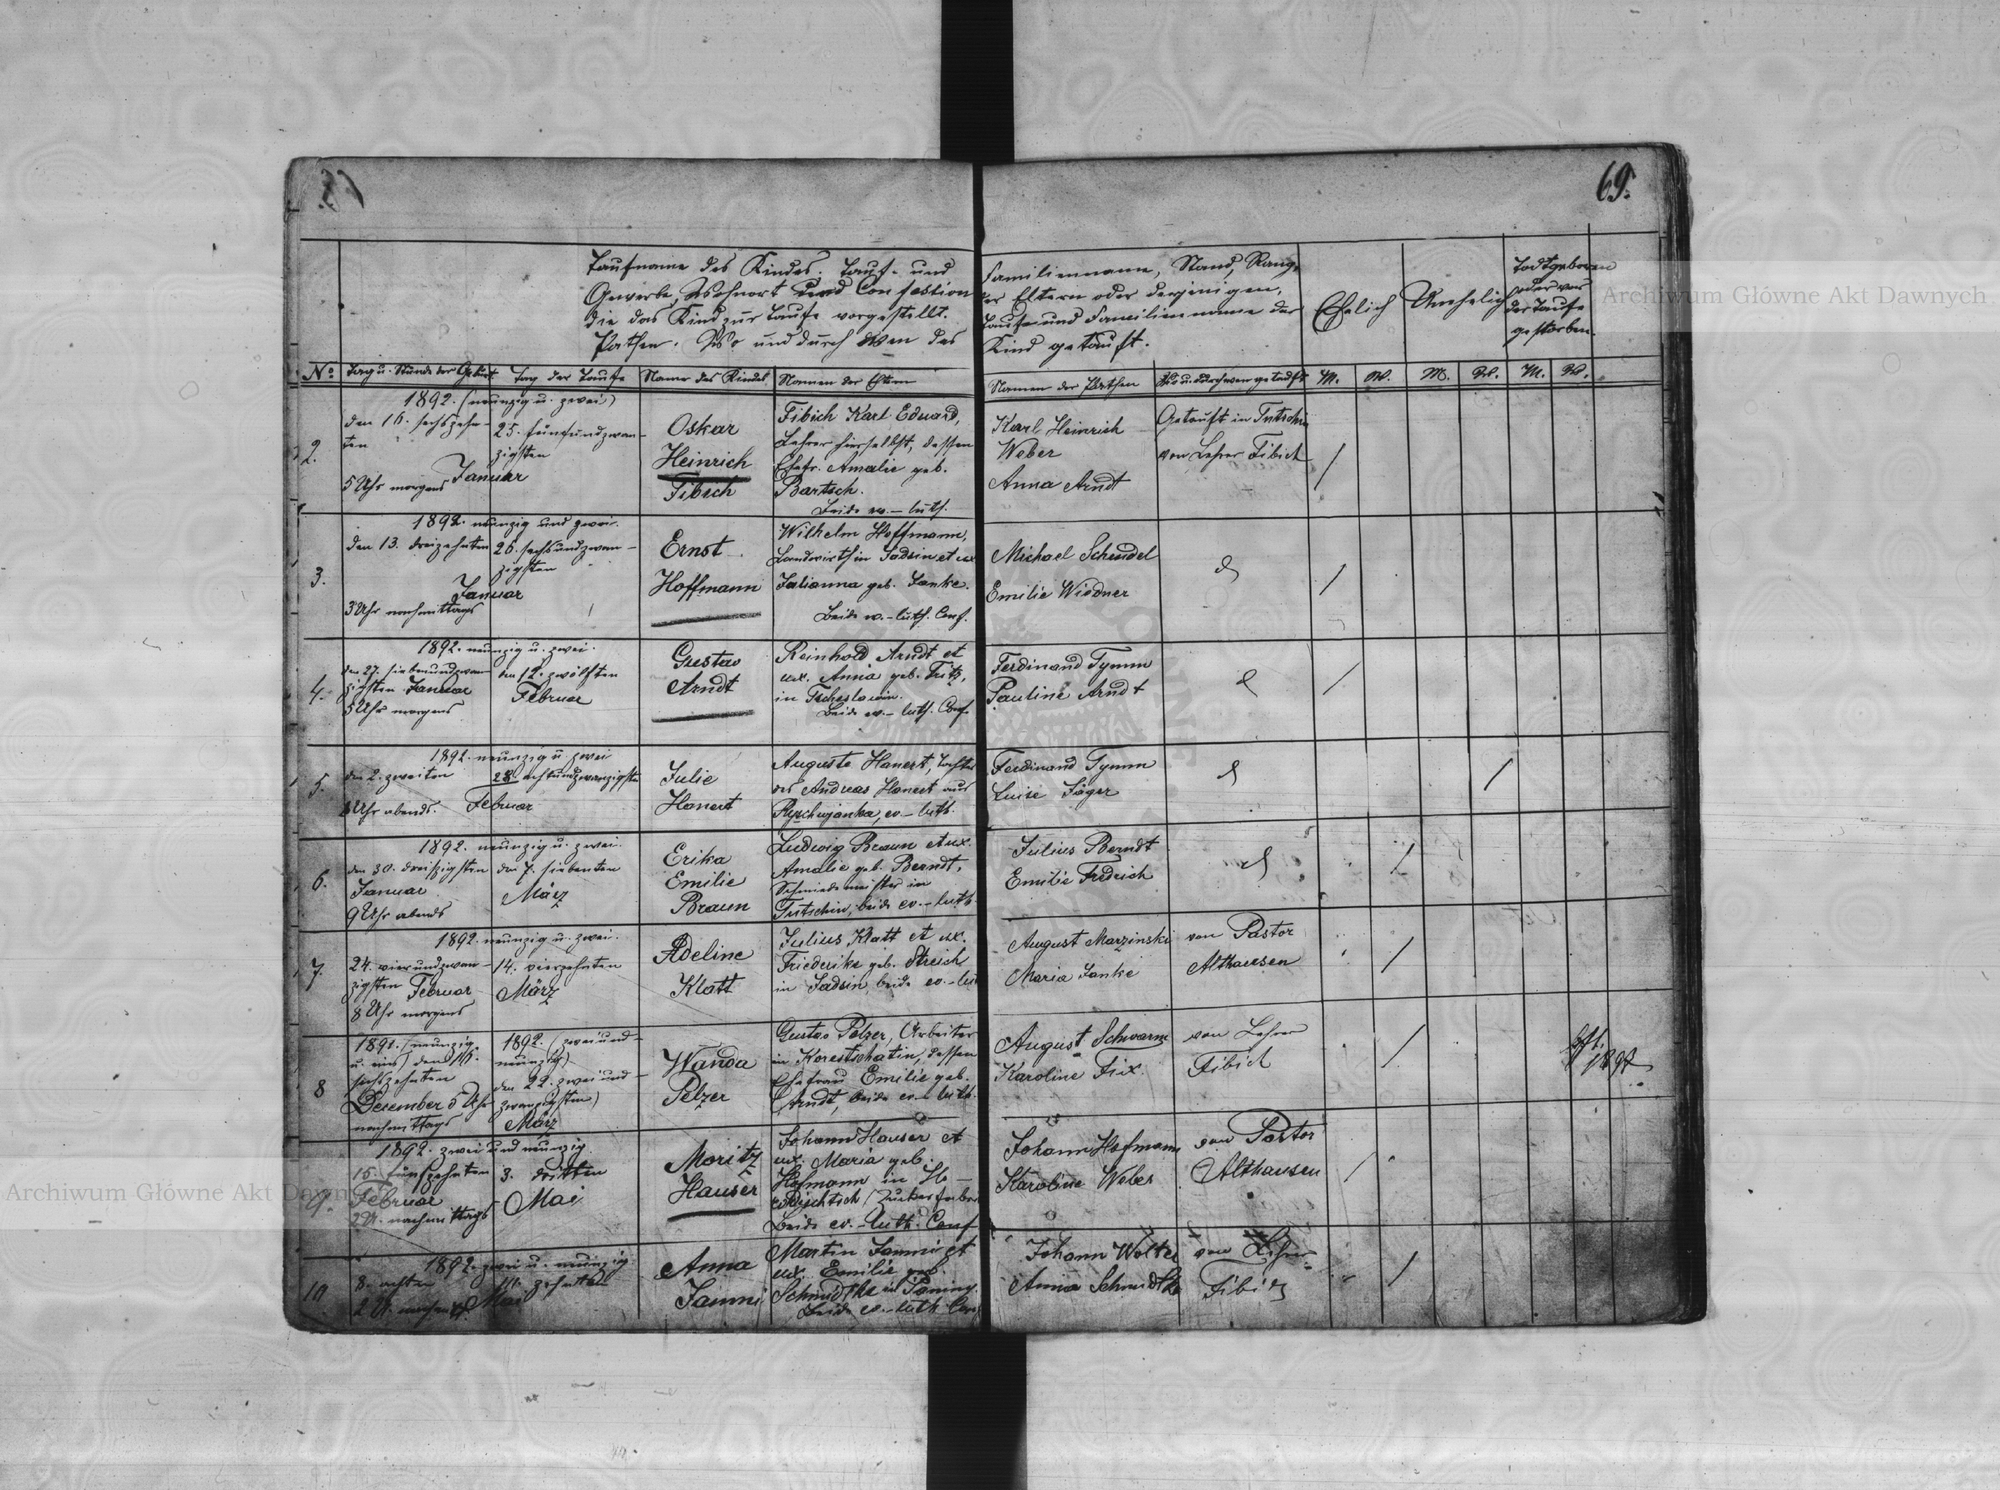 69.
Taufname des Kindes. Tauf- und
Gewerbe, Wohnort und Confession
die das Kind zur Taufe vorgestellt.
Pathen. Wo und durch wen das
Familienname, Stand, Rang,
der Eltern oder derjenigen,
Tauf- und Familienname der
Kind getauft.
Ehelich
Unehelich
Todtgeboren
oder vor
der Taufe
gestorben.
No
Tag u. Stunde der Geburt
Tag der Taufe
Name des Kindes
Namen der Eltern
Namen der Pathen
Wo u. durch wen getauft
M.
W.
M.
W.
M.
W.
2.
1892. (neunzig u. zwei)
den 16. sechszehn-
ten
5 Uhr morgens
25. fünfundzwan-
zigsten
Januar
Oskar
Heinrich
Fibich
Fibich Karl Eduard,
Lehrer hierselbst, dessen
Ehefr. Amalie geb.
Bartsch.
Beide ev.-luth.
Karl Heinrich
Weber
Anna Arndt
Getauft in Tutschin
von Lehrer Fibich
3.
1892. neunzig und zwei.
den 13. dreizehnten
26. sechsundzwan-
zigsten
Januar
3 Uhr nachmittags
Ernst
Hoffmann
Wilhelm Hoffmann,
Landwirth in Sadsin et ux
Julianna geb. Janke.
Beide ev.-luth. Conf.
Michael Schindel
Emilie Widdner
4.
1892. neunzig u. zwei.
den 27. siebenundzwan-
zigsten Januar
5 Uhr morgens
den 12. zwölften
Februar
Gustav
Arndt
Reinhold Arndt et
ux. Anna geb. Fritz,
in
Beide ev.-luth. Conf.
Ferdinand Tymm
Pauline Arndt
5.
1892. neunzig u. zwei
den 2. zweiten
28. achtundzwanzigsten
8 Uhr abends.
Februar
Julie
Hanert
Auguste Hanert, Tochter
des Andreas Hanert aus
ev.-luth.
Ferdinand Tymm
Luise Jäger
6.
1892. neunzig u. zwei.
den 30. dreiszigsten
Januar
9 Uhr abends
den 7. siebenten
März
Erika
Emilie
Braun
Ludwig Braun et ux.
Amalie geb. Berndt,
Schmiedemeister in
Tutschin, beide ev.-luth
Julius Berndt
Emilie Fridrich
7.
1892. neunzig u. zwei.
24. vierundzwan-
zigsten Februar
8 Uhr morgens
14. vierzehnten
März
Adeline
Klatt
Julius Klatt et ux.
Friederike geb. Streich
in Sadsin, beide ev.-luth
August Marzinski
Maria Janke
von Pastor
Althausen
8
1891. (neunzig
u. eins) den 16.
sechszehnten
December 5 Uhr
nachmittags
1892. (zwei und-
neunzig)
den 22. zwei und-
zwanzigsten)
März
Wanda
Pelzer
Gustav Pelzer, Arbeiter
in Korestschatin, dessen
Ehefrau Emilie geb.
Arndt, beide ev.-luth.
August Schwarm
Karoline Fix
von Lehrer
Fibich
9.
1892. zwei und neunzig.
15. fünfzehnten
Februar
2 U. nachmittags
3. dritten
Mai
Moritz
Hauser
Johann Hauser et
ux. Maria geb.
Hofmann in
Beide ev.-luth. Conf
Johann Hofmann
Karoline Weber
von Pastor
Althausen
10
1892. zwei u. neunzig
8. achten
2 U. nachmitt.
10. zehnten
Mai
Anna
Jammi
Martin Jammi et
ux. Emilie geb.
Schmidtke in
Beide ev.-luth. Conf
Johann Wolte
Anna Schmidtke
von Lehrer
Fibich
Archiwum Główne Akt Dawnych
Archiwum Główne Akt Dawnych